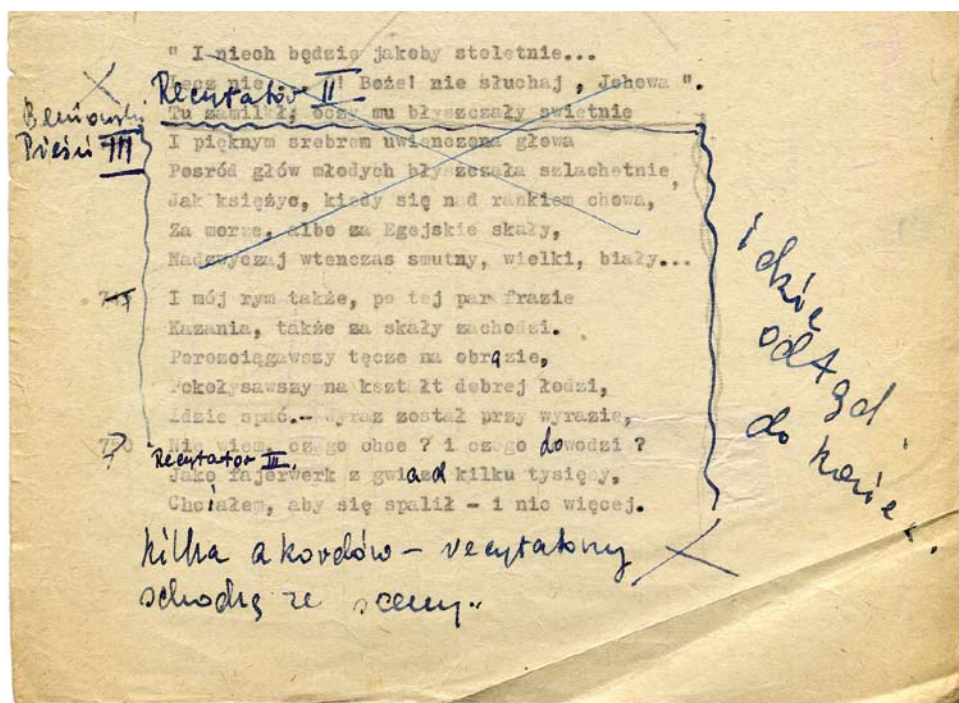 " I niech będzie jakoby stoletnie...
Lecz nie ! Boże! nie słuchaj , Jehowa ".
Recytator II
Tu zamilkł; oczy mu błyszczały swietnie
Beniowski
Pieśń III
I pięknym srebrem uwieńczona głowa
Posród głów młodych błyszczała szlachetnie,
Jak księżyc, kiedy się nad rankiem chowa,
Za morze, albo za Egejskie skały,
Nadzwyczaj wtenczas smutny, wielki, biały...
I mój rym także, po tej par frazie
Kazania, także za skały zachodzi.
Porozciągawszy tęcze na obrazie,
Pokołysawszy na kszt łt dobrej łodzi,
Idzie spać.- Wyraz został przy wyrazie,
Nie wiem, czego chce ? i czego dowodzi ?
Recytator III.
Jako fajerwerk z gwiazd kilku tysięcy,
Chciałem, aby się spalił - i nic więcej.
idzie
odtąd
do końca.
kilka akordów - recytatorzy
schodzą ze sceny..